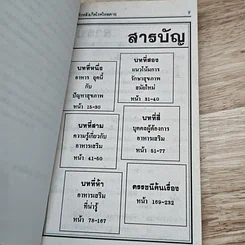 สารบัญ
บทที่หนึ่ง
อาหาร ยุคนี้
กับ
ปัญหาสุขภาพ
หน้า 15-30
บทที่สอง
แนวโน้มการ
รักษาสุขภาพ
สมัยใหม่
หน้า 31-40
บทที่สาม
ความรู้เกี่ยวกับ
อาหารเสริม
หน้า 41-50
บทที่สี่
บุคคลผู้ต้องการ
อาหารเสริม
หน้า 51-77
บทที่ห้า
อาหารเสริม
ที่น่ารู้
หน้า 78-167
ดรรชนีค้นเรื่อง
หน้า 169-232